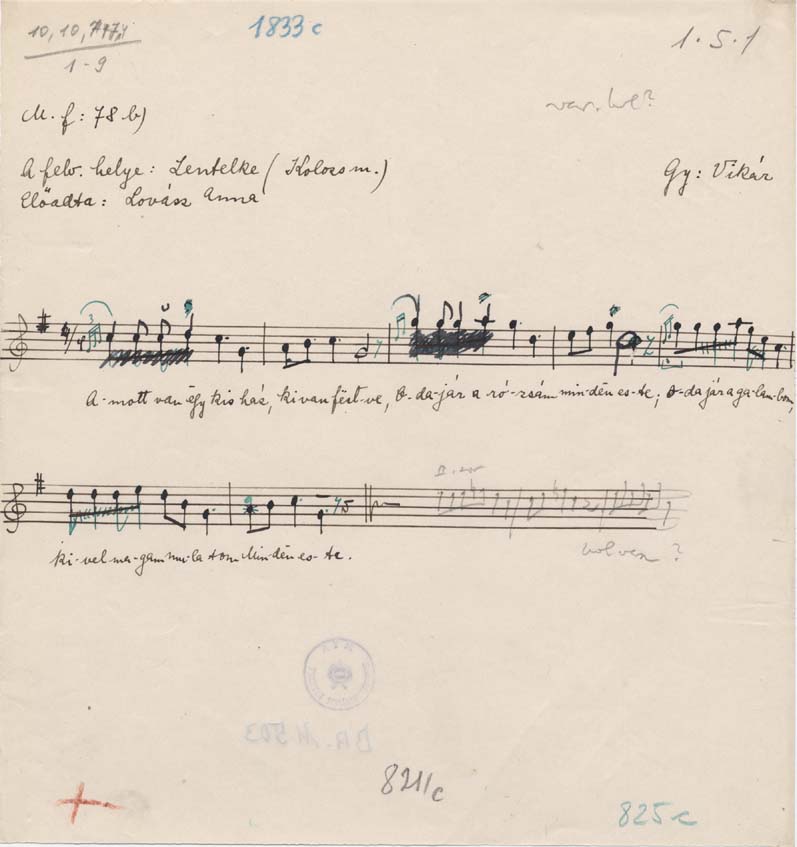 10, 10,
1833 c
1 · 5 · 1
1 - 9
var.
M. f: 78 b)
A felv. helye: Zentelke (Kolozs m.)
Gy: Vikár
Előadta: Lovász Anna
3
A-mott van ëgy kis ház, ki van fëst-ve, o-da-jár a ró-zsám min-dën es-te; o-da jár a ga-lam-bom,
II.
ki-vel ma-gam mu-la tom Min-dën es-te.
hol van ?
BR. M 503
821/c
825 c